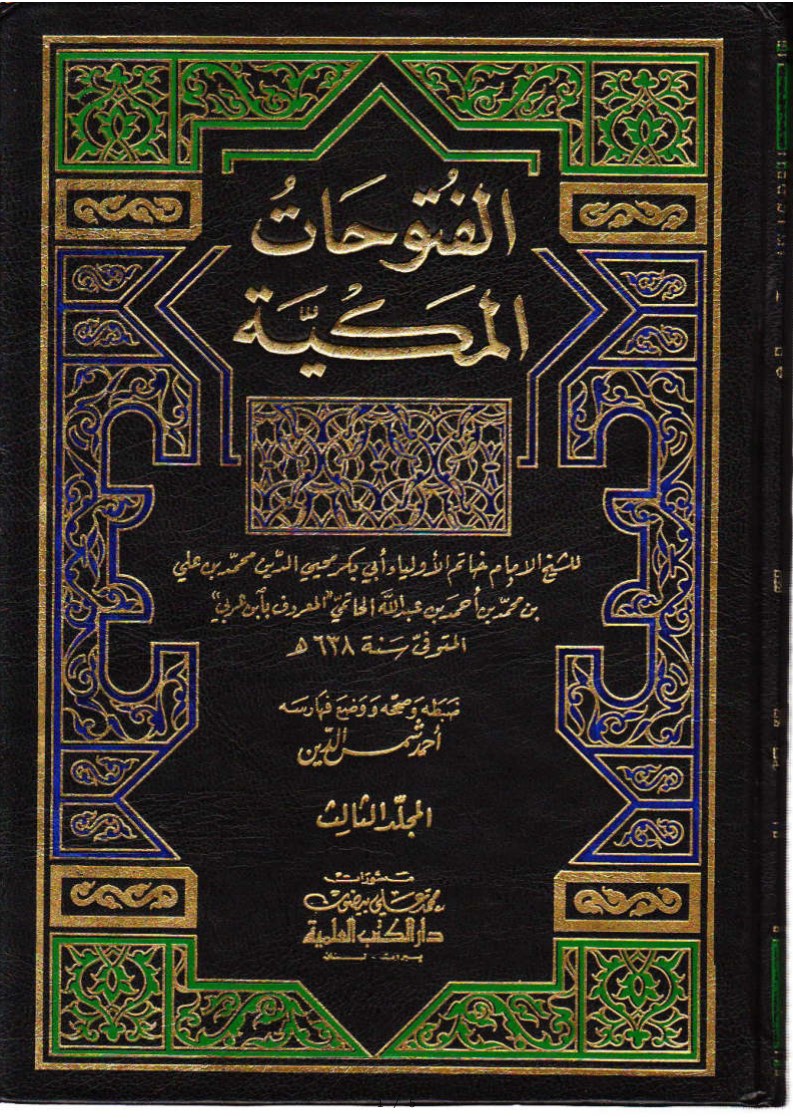 الفُتُوحَاتُ
المَكْيَّة
للشيخ الإمام خاتم الأولياء أبي بكر محيي الدين محمّد بن علي
بن محمّد بن أحمد بن عبد اللّه الحاتميّ "المعروف بابن عربي"
المتوفىّ سَنة ٦٣٨ ھ
ضبَطه وَصحّحه وَوَضع فهارسه
أحمد شمس الدّين
المجلّد الثالث
منشورات
محمد علي بيضون
دار الكتب العلمية
بيروت - لبنان
1 / 5